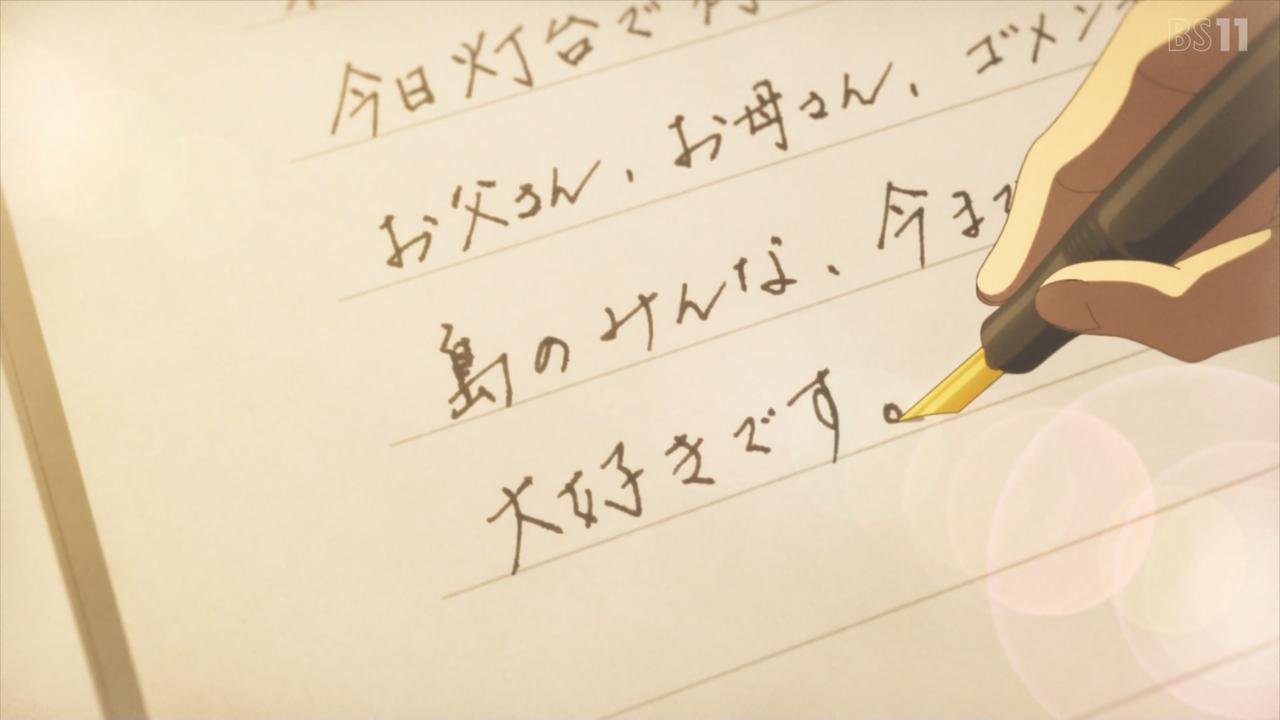 今日灯台で
お父さん、お母さん、ゴメン
島のみんな、今まで
大好きです。
BS11